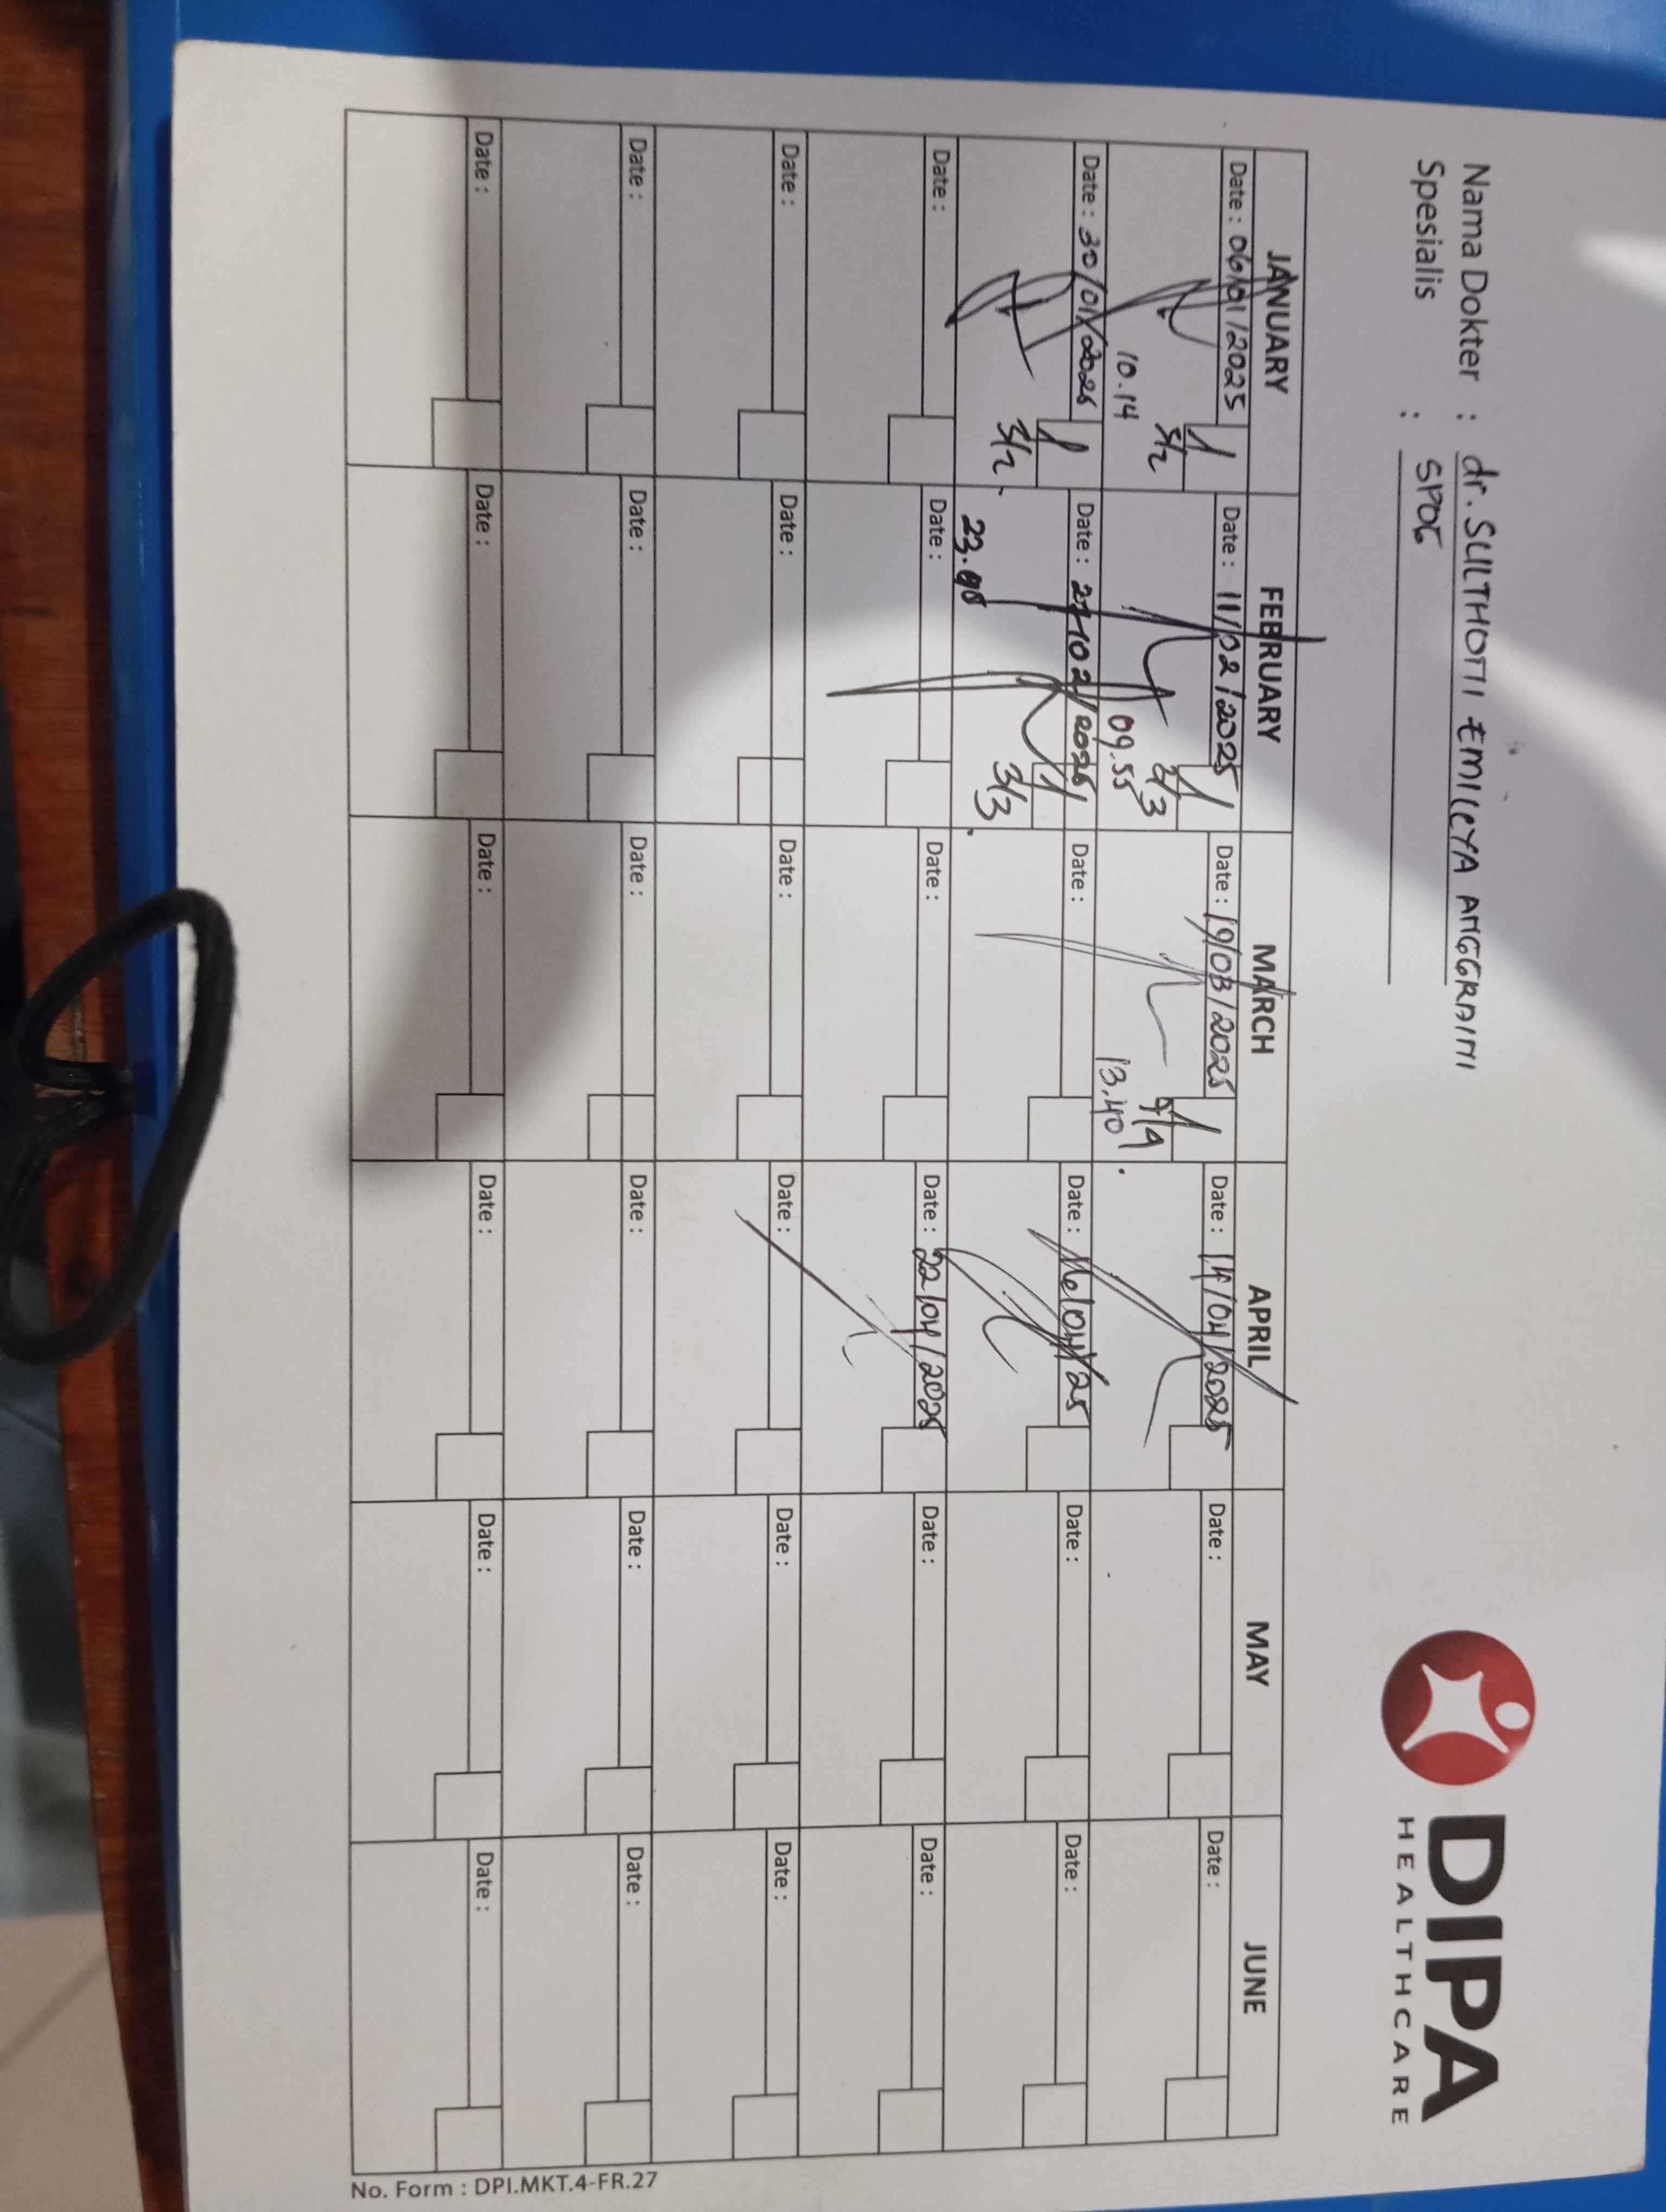 Nama Dokter : dr. SULTHONI EMILCYA ANGGRAINI
Spesialis : SPOG
DIPA
HEALTHCARE
JANUARY FEBRUARY MARCH APRIL MAY JUNE
Date : 06/01/2025 Date : 11/02/2025 Date : 19/03/2025 Date : 14/04/2025 Date : Date :
5/2 3/3
10.14 09.55 13.40
Date : 30/01/2025 Date : 27/02/2025 Date : Date : 16/04/25 Date : Date :
3/2 3/3
Date : Date : Date : Date : 22/04/2025 Date : Date :
Date : Date : Date : Date : Date : Date :
Date : Date : Date : Date : Date : Date :
Date : Date : Date : Date : Date : Date :
No. Form : DPI.MKT.4-FR.27